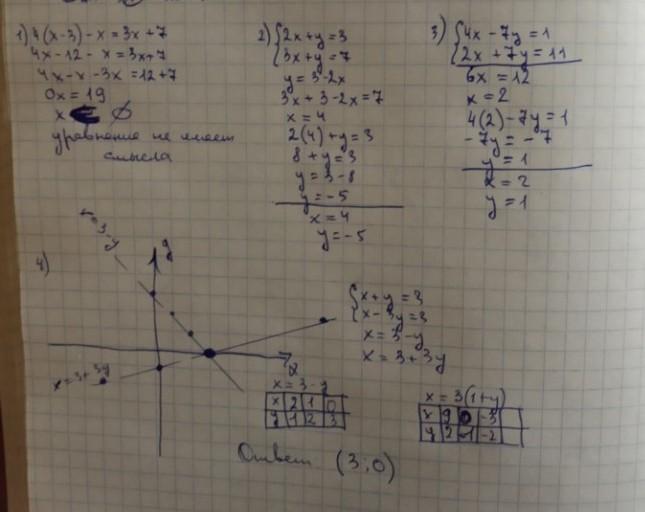 1) 4(x-3) - x = 3x + 7
4x - 12 - x = 3x + 7
4x - x - 3x = 12 + 7
0x = 19
x ∅
уравнение не имеет
смысла
2) {2x + y = 3
3x + y = 7
y = 3 - 2x
3x + 3 - 2x = 7
x = 4
2(4) + y = 3
8 + y = 3
y = 3 - 8
y = -5
x = 4
y = -5
3) {4x - 7y = 1
2x + 7y = 11
6x = 12
x = 2
4(2) - 7y = 1
-7y = -7
y = 1
x = 2
y = 1
4)
x = 3 - y
y
x
x = 3 + 3y
{x + y = 3
x - 3y = 3
x = 3 - y
x = 3 + 3y
x = 3 - y
x 2 1 0
y 1 2 3
x = 3(1 + y)
x 9 0 -3
y 2 -1 -2
Ответ (3; 0)